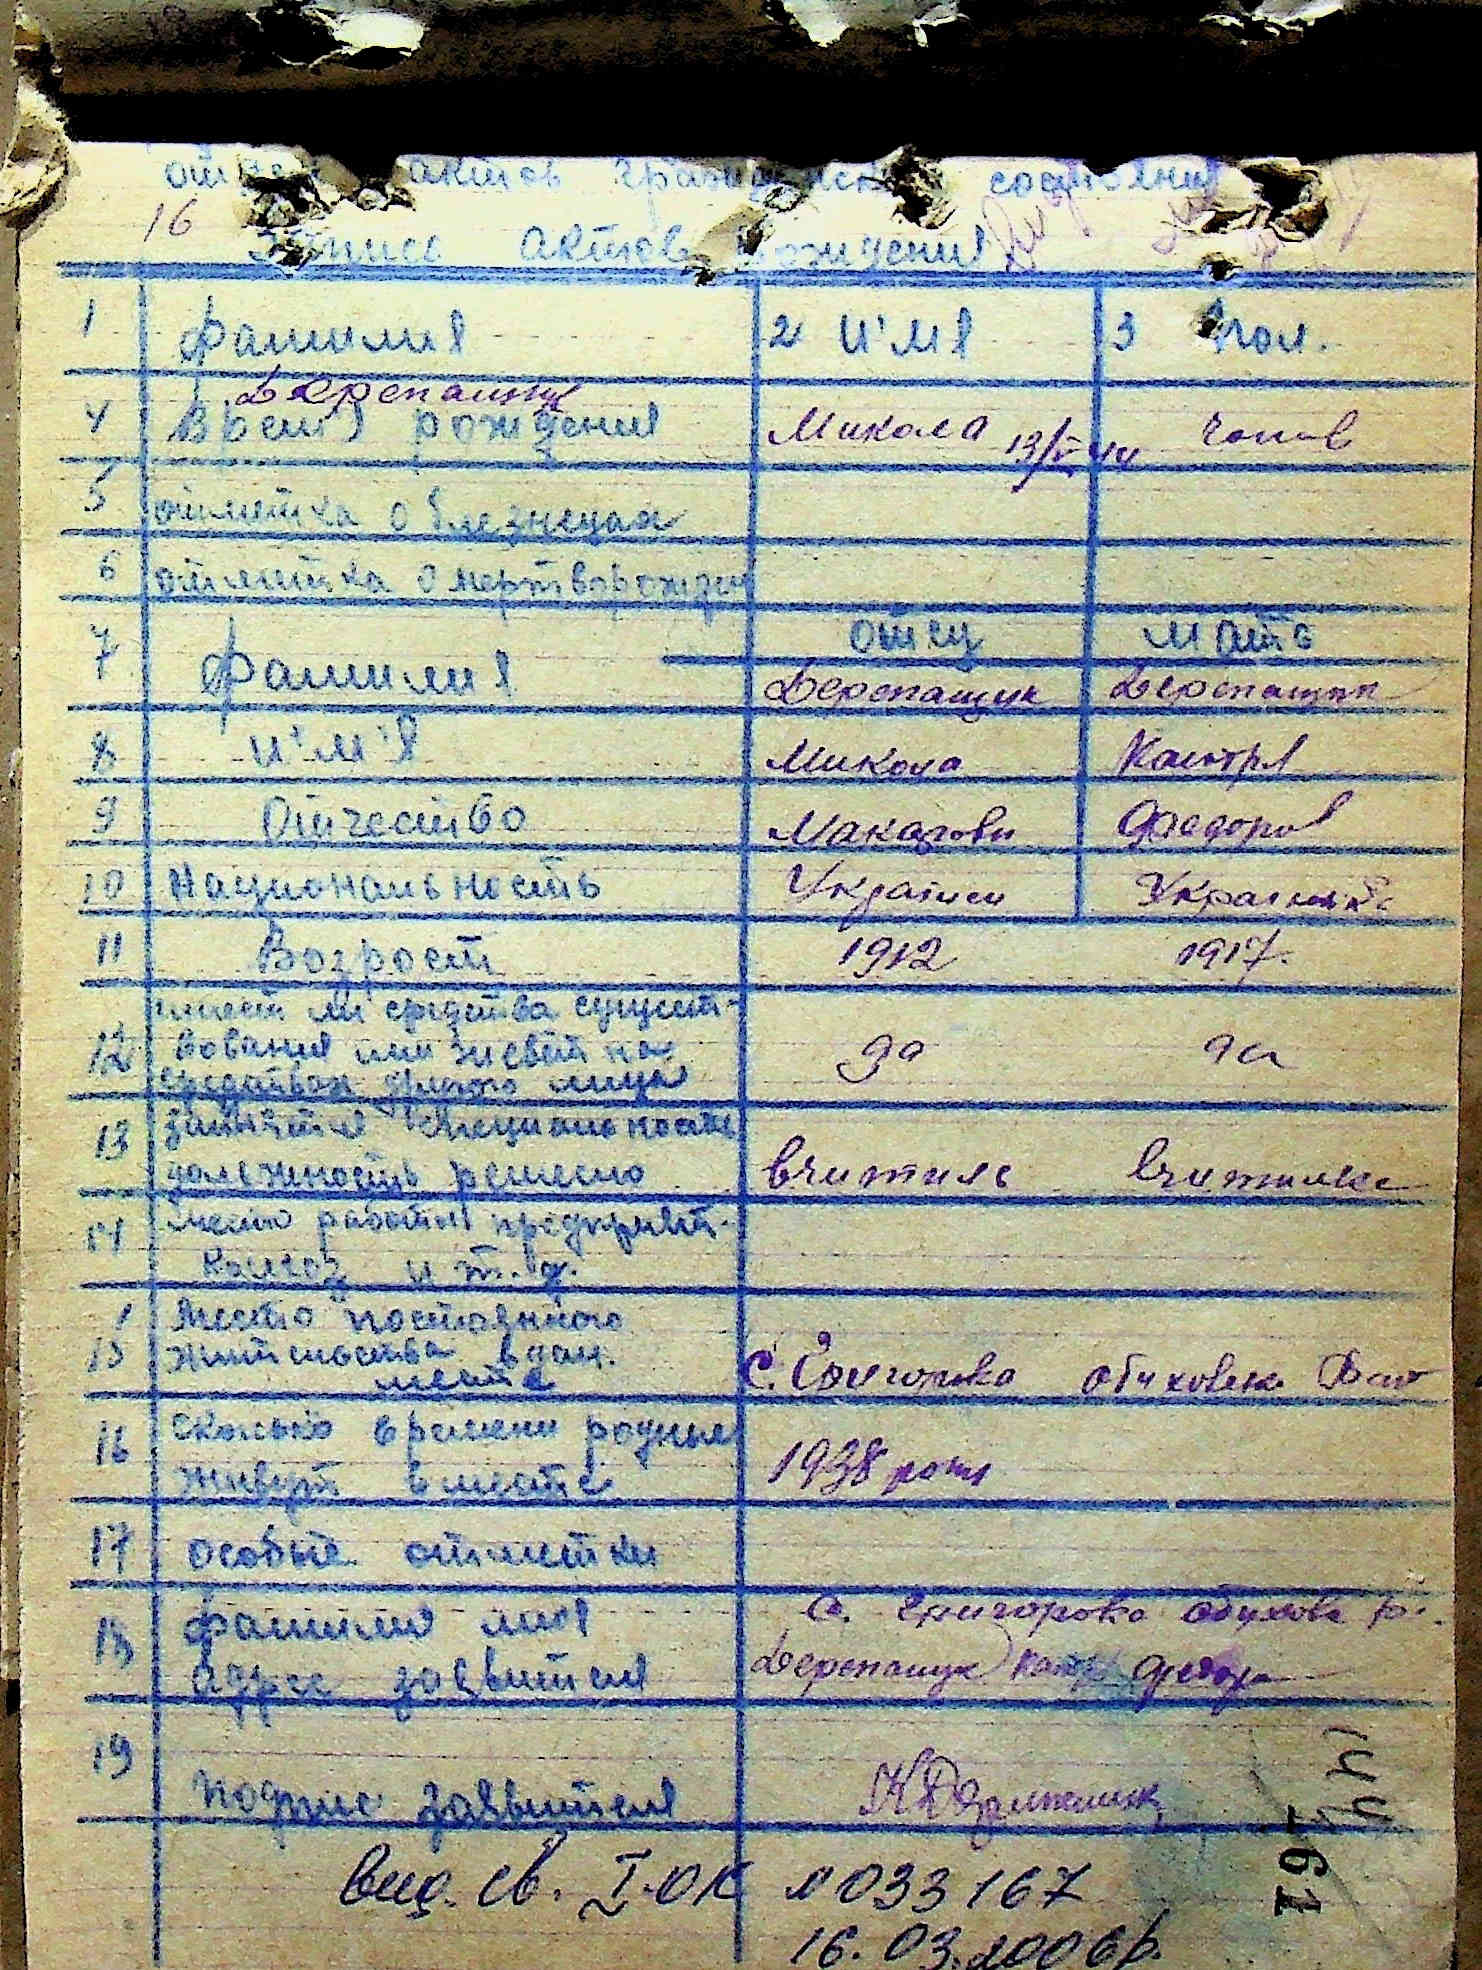 актов состояния
16
Запись актов рождения
1 фамилия 2 и'мя 3 пол.
4 Время рождения Микола 13/V 44 чолов
5 отметка о близнецах
6 отметка о мертворожден
отец мать
7 фамилия Дерепащук
8 и'м'я Микола
9 Отчество Макарови Федоров
10 Национальность Українец Українка
11 Возрост 1912 1917.
12 имеет ли средства сущест-
вования или живёт на
средствах другого лица да да
13 занятие специальность
должность ремесло вчитиль вчителка
14 место работы предприят.
колхоз и т.д.
Место постоянного
15 жительства в дан.
месте С. Григоровка обуховск
16 сколько времени родные
живут в месте 1938 року
17 особые отметки
18 фамилия имя С. Григоровка обухов р.
адрес заявителя Дерепащук
19
подпис заявителя
Вид. св. I-ОК № 033167
16.03.2006р.